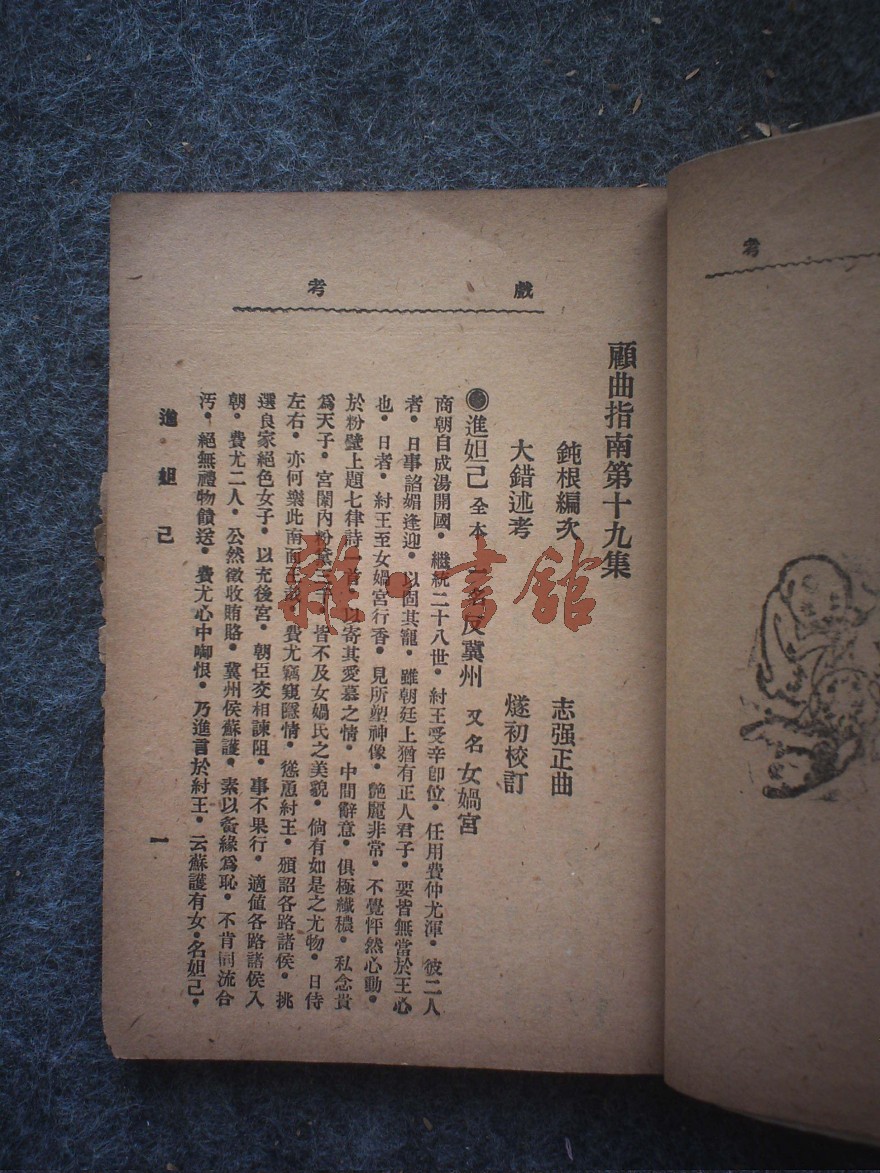 戲考
顧曲指南第十九集
鈍根編次 志强正曲
大錯述考 燧初校訂
進妲己 全本 一名反冀州 又名女媧宮
商朝自成湯開國。繼統二十八世。紂王受辛卽位。任用費仲尤渾。彼二人
者。日事諂媚逢迎。以固其寵。雖朝廷上猶有正人君子。要皆無當於王心
也。日者。紂王至女媧宮行香。見所塑神像。艶麗非常。不覺怦然心動。
於粉壁上題七律詩一首。以寄其愛慕之情。中間辭意。俱極纖穠。私念貴
爲天子。宮闈內粉黛三千。皆不及女媧氏之美貌。倘有如是之尤物。日侍
左右。亦何樂此南面王哉。費尤竊窺隱情。慫恿紂王。頒詔各路諸侯。挑
選良家絕色女子。以充後宮。朝臣交相諫阻。事不果行。適值各路諸侯入
朝。費尤二人。公然徵收賄賂。冀州侯蘇護。素以夤緣爲恥。不肯同流合
汚。絕無禮物饋送。費尤心中啣恨。乃進言於紂王。云蘇護有女。名妲己。
進妲己
一
考
雜·書館